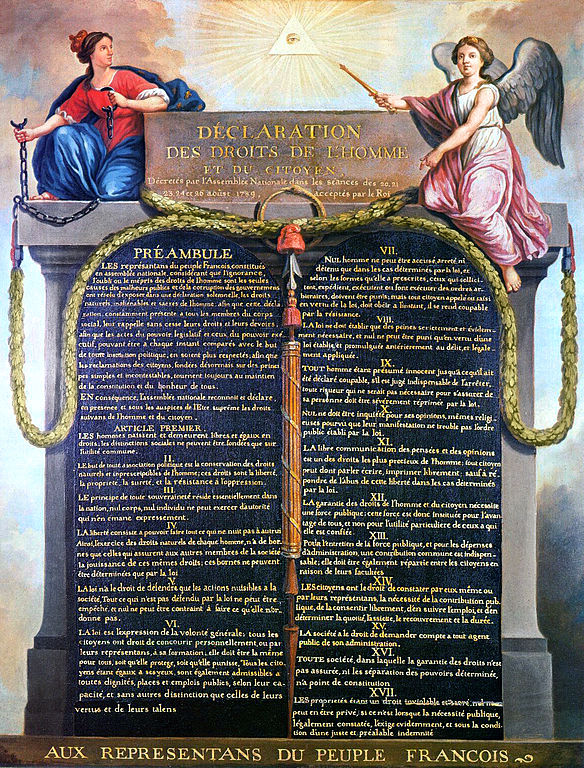 DÉCLARATION
DES DROITS DE L'HOMME
ET DU CITOYEN,
Décretés par l'Assemblée Nationale dans les séances des 20, 21
23, 24 et 26 août 1789, acceptés par le Roi
PRÉAMBULE
LES représentans du peuple François, constitués
en assemblée nationale, considérant que l'ignorance,
l'oubli ou le mépris des droits de l'homme sont les seules
causes des malheurs publics et de la corruption des gouvernemens
ont résolu d'exposer dans une déclaration solemnelle, les droits
naturels, inaliénables et sacrés de l'homme; afin que cette décla-
ration, constamment présente à tous les membres du corps
social, leur rappelle sans cesse leurs droits et leurs devoirs;
afin que les actes du pouvoir législatif et ceux du pouvoir exé-
cutif, pouvant être à chaque instant comparés avec le but
de toute institution politique, en soient plus respectés; afin que
les réclamations des citoyens, fondées désormais sur des princi-
pes simples et incontestables, tournent toujours au maintien
de la constitution et du bonheur de tous.
EN conséquence, l'assemblée nationale reconnoit et déclare,
en présence et sous les auspices de l'Etre suprême les droits
suivans de l'homme et du citoyen.
ARTICLE PREMIER.
LES hommes naissent et demeurent libres et égaux en
droits; les distinctions sociales ne peuvent être fondées que sur
l'utilité commune.
II.
LE but de toute association politique est la conservation des droits
naturels et imprescriptibles de l'homme; ces droits sont la liberté,
la propriété, la sureté, et la résistance à l'oppression.
III.
LE principe de toute souveraineté réside essentiellement dans
la nation, nul corps, nul individu ne peut exercer d'autorité
qui n'en émane expressement.
IV.
LA liberté consiste a pouvoir faire tout ce qui ne nuit pas à autrui
Ainsi, l'exercice des droits naturels de chaque homme, n'a de bor-
nes que celles qui assurent aux autres membres de la société
la jouissance de ces mêmes droits; ces bornes ne peuvent
être déterminées que par la loi
V.
LA loi n'a le droit de défendre que les actions nuisibles à la
société. Tout ce qui n'est pas défendu par la loi ne peut être
empêché, et nul ne peut être contraint à faire ce qu'elle n'or-
donne pas.
VI.
LA loi est l'expression de la volonté générale; tous les
citoyens ont droit de concourir personnellement, ou par
leurs représentans, à sa formation; elle doit être la même
pour tous, soit qu'elle protege, soit qu'elle punisse. Tous les cito-
yens étant égaux à ses yeux, sont également admissibles à
toutes dignités, places et emplois publics, selon leur ca-
pacité, et sans autres distinction que celles de leurs
vertus et de leurs talens.
VII.
NUL homme ne peut être accusé, arreté, ni
détenu que dans les cas déterminés par la loi, et
selon les formes qu'elle a prescrites, ceux qui sollici-
tent, expédient, exécutent ou font exécuter des ordres ar-
bitraires, doivent être punis; mais tout citoyen appelé ou saisi
en vertu de la loi, doit obéir à l'instant, il se rend coupable
par la résistance.
VIII.
LA loi ne doit établir que des peines strictement et évidem-
ment nécessaire, et nul ne peut être puni qu'en vertu d'une
loi établie et promulguée antérierement au délit, et légale-
ment appliquée.
IX.
TOUT homme étant présumé innocent jusqu'à ce qu'il ait
été déclaré coupable, s'il est jugé indispensable de l'arrêter,
toute rigueur qui ne serait pas nécessaire pour s'assurer de
sa personne doit être sévèrement réprimée par la loi.
X.
NUL ne doit être inquiété pour ses opinions, mêmes religi-
euses pourvu que leur manifestation ne trouble pas l'ordre
public établi par la loi.
XI.
LA libre communication des pensées et des opinions
est un des droits les plus precieux de l'homme; tout citoyen
peut donc parler écrire, imprimer librement; sauf à ré-
pondre de l'abus de cette liberté dans les cas déterminés
par la loi.
XII.
LA garantie des droits de l'homme et du citoyen nécessite
une force publique; cette force est donc instituée pour l'avan-
tage de tous, et non pour l'utilité particuliere de ceux a qui
elle est confiée.
XIII.
POUR l'entretien de la force publique, et pour les dépenses
d'administration, une contribution commune est indispen-
sable; elle doit être également répartie entre les citoyens en
raison de leurs facultées
XIV.
LES citoyens ont le droit de constater par eux même ou
par leurs représentans, la nécessité de la contribution pub-
lique, de la consentir librement, d'en suivre l'emploi, et d'en
déterminer la quotité, l'assiette, le recouvrement et la durée.
XV.
LA société a le droit de demander compte a tout agent
public de son administration.
XVI.
TOUTE société, dans laquelle la garantie des droits n'est
pas assurée, ni la séparation des pouvoirs déterminée,
n'a point de constitution
XVII.
LES propriétés étant un droit inviolable et sacré, nul ne
peut en être privé, si ce n'est lorsque la nécessité publique,
légalement constatée, l'exige évidemment, et sous la condi-
tion d'une juste et préalable indemnité
AUX REPRESENTANS DU PEUPLE FRANCOIS